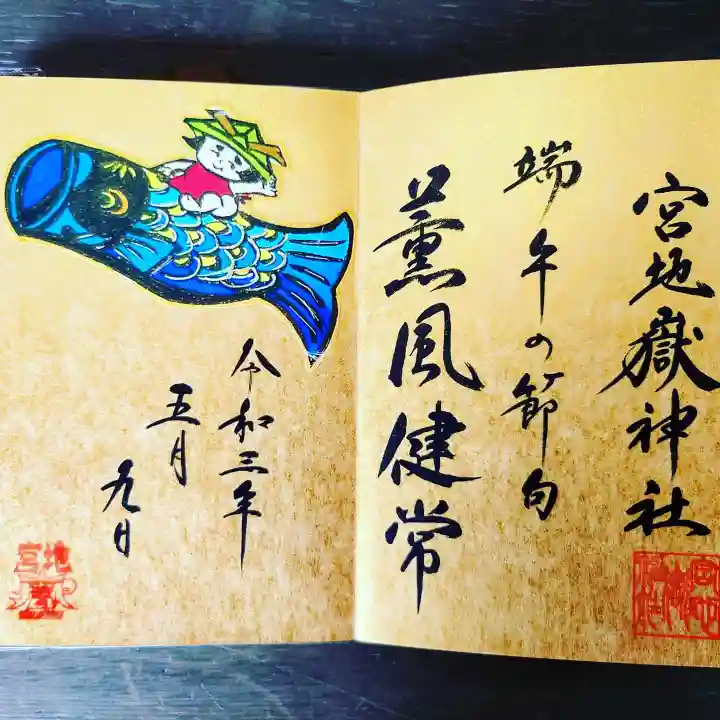 宮地嶽神社
端午の節句
薫風健常
令和三年
五月
九日
宮地
嶽